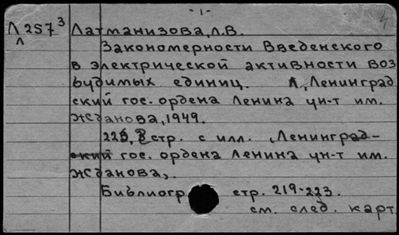 -1-
Л 257³ Латманизова, Л.В.
Л
Закономерности Введенского
в электрической активности воз
будимых единиц. Л., Ленинград
ский гос. ордена Ленина ун-т им.
Жданова, 1949.
стр. с илл. (Ленинград-
ский гос. ордена Ленина ун-т им.
Жданова).
Библиогр стр. 219-223.
см. след. карт